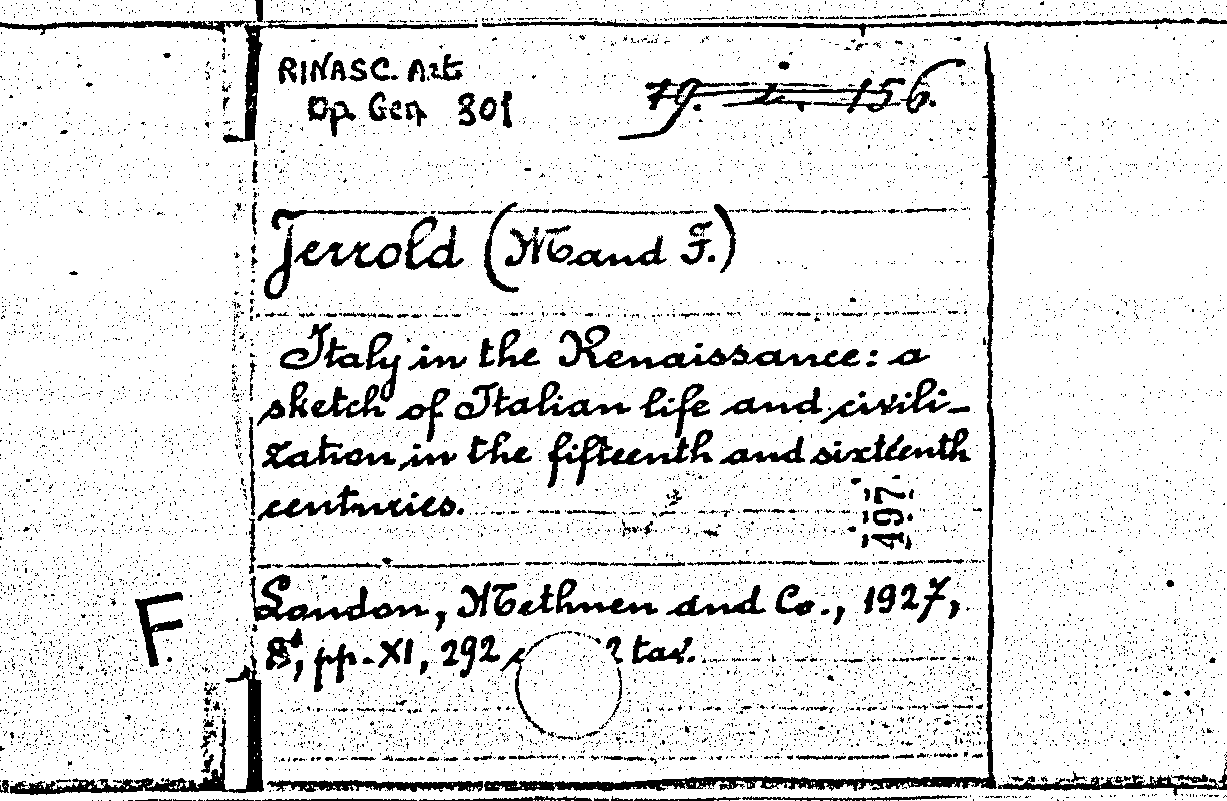 RINASC. Art
Op. Gen 301
Jerrold (M and F.)
Italy in the Renaissance: a
sketch of Italian life and civili-
zation in the fifteenth and sixteenth
centuries.
497
London, Methuen and Co., 1927,
8º, pp. XI, 292 2 tav.
F.